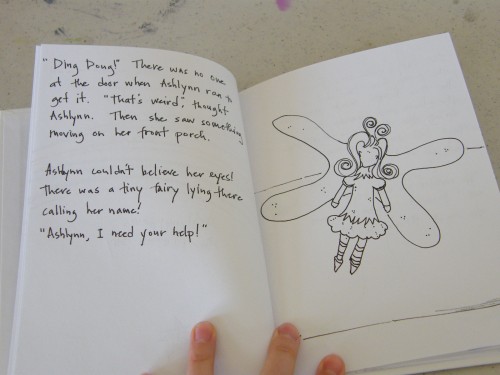 "Ding Dong!" There was no one
at the door when Ashlynn ran to
get it. "That's weird", thought
Ashlynn. Then she saw something
moving on her front porch.
Ashlynn couldn't believe her eyes!
There was a tiny fairy lying there
calling her name!
"Ashlynn, I need your help!"